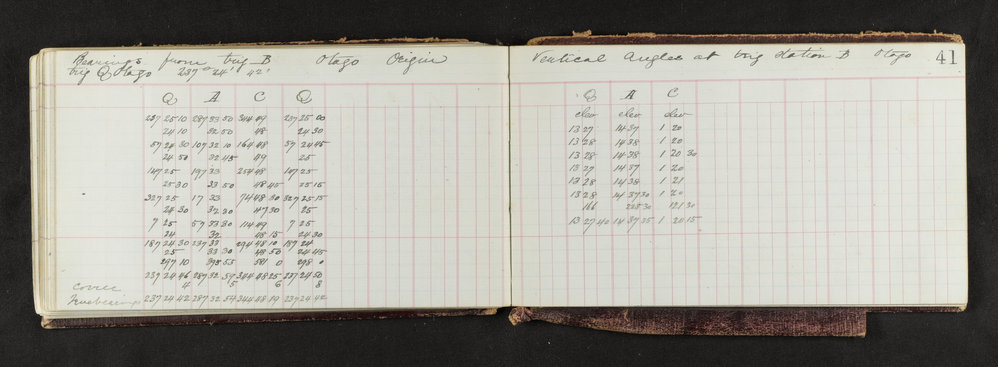 Bearings from trig B Otago Origin
trig Q Otago 237° 24' 42"
Q A C Q
237 25 10 287 33 50 344 49 237 25 00
24 10 32 50 48 24 30
57 24 30 107 32 10 164 48 57 24 45
24 50 32 45 49 25
147 25 197 33 254 48 107 25
25 30 33 50 48 45 25 15
327 25 17 33 74 48 30 327 25 15
24 30 32 30 47 30 25
7 25 57 33 30 114 49 7 25
24 32 48 15 24 30
187 24 30 237 33 294 48 10 187 24
25 33 30 48 50 24 45
297 10 395 55 581 0 298 0
237 24 46 287 32 59 344 48 25 237 24 50
Correc 4 5 6 8
True bearings 237 24 42 287 32 54 344 48 19 237 24 42
Vertical Angles at trig Station B Otago 41
Q A C
elev elev elev
13 27 14 37 1 20
13 28 14 38 1 20
13 28 14 38 1 20 30
13 27 14 37 1 20
13 28 14 38 1 21
13 28 14 37 30 1 20
166 225 30 121 30
13 27 40 14 37 35 1 20 15